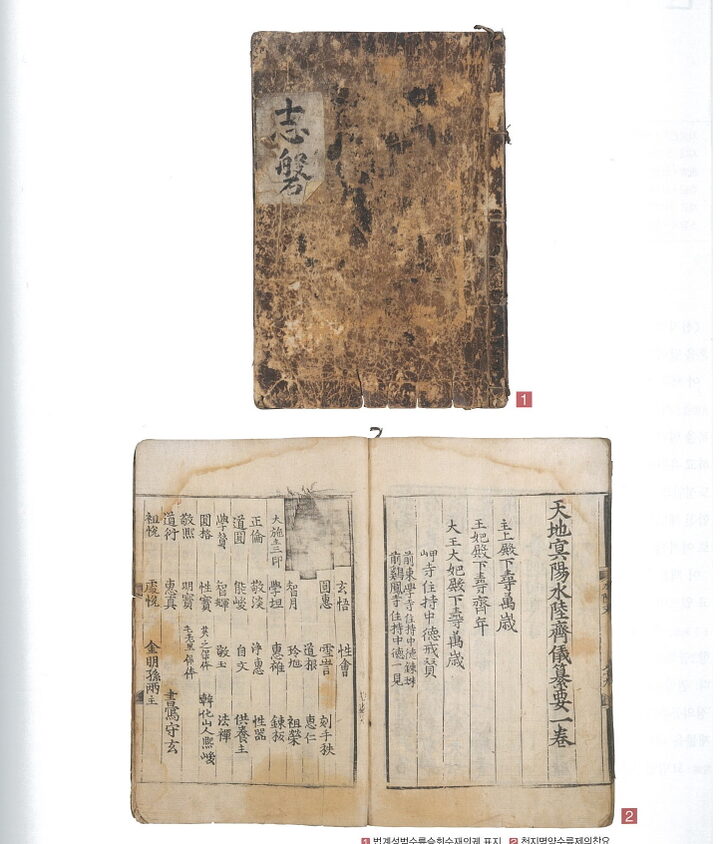 志
磐
1
天地冥陽水陸齊儀纂要一卷
主上殿下壽萬歲
王妃殿下壽齊年
大王大妃殿下壽萬歲
岬寺住持中德戒賢
前東學寺住持中德錬珠
前鷄鳳寺住持中德一見
玄悟 性會
圓惠 雪岩 刻手
道根 惠仁
智月 玲旭 祖榮
大施主三印 學坦 惠雄 錬板
正倫 敬淡 淨惠 性器
道圓 能峻 自文 供養主
智輝 法禪
圓格 性寶 幹化山人熙峻
敬熙 明寶
道行 惠真 畫守玄
祖悅 金明孫兩主
2
1 범계성범수륙승회수재의궤 표지 2 천지명양수륙제의찬요